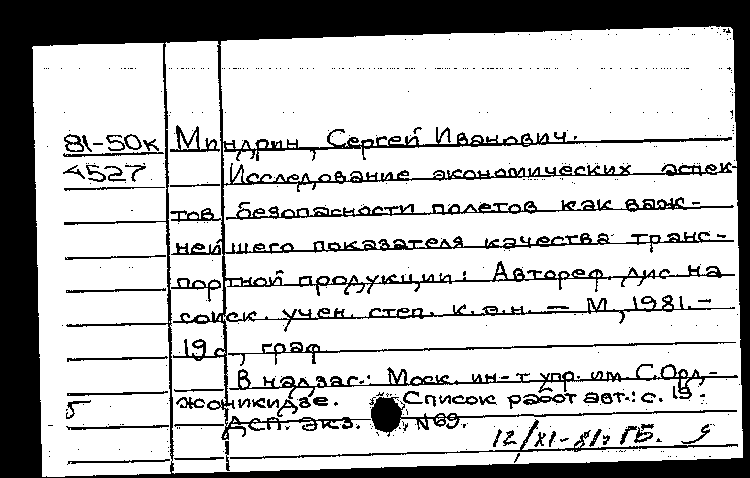 81-50к Миндрин, Сергей Иванович.
4527 Исследование экономических аспек-
тов безопасности полетов как важ-
нейшего показателя качества транс-
портной продукции: Автореф. дис на
соиск. учен. степ. к.э.н. — М, 1981. –
19 с, граф
В надзаг.: Моск. ин-т упр. им С.Орд-
жоникидзе. Список работ авт.: с. 19.
ДСП. Экз. N69.
12/XI-81г ГБ.